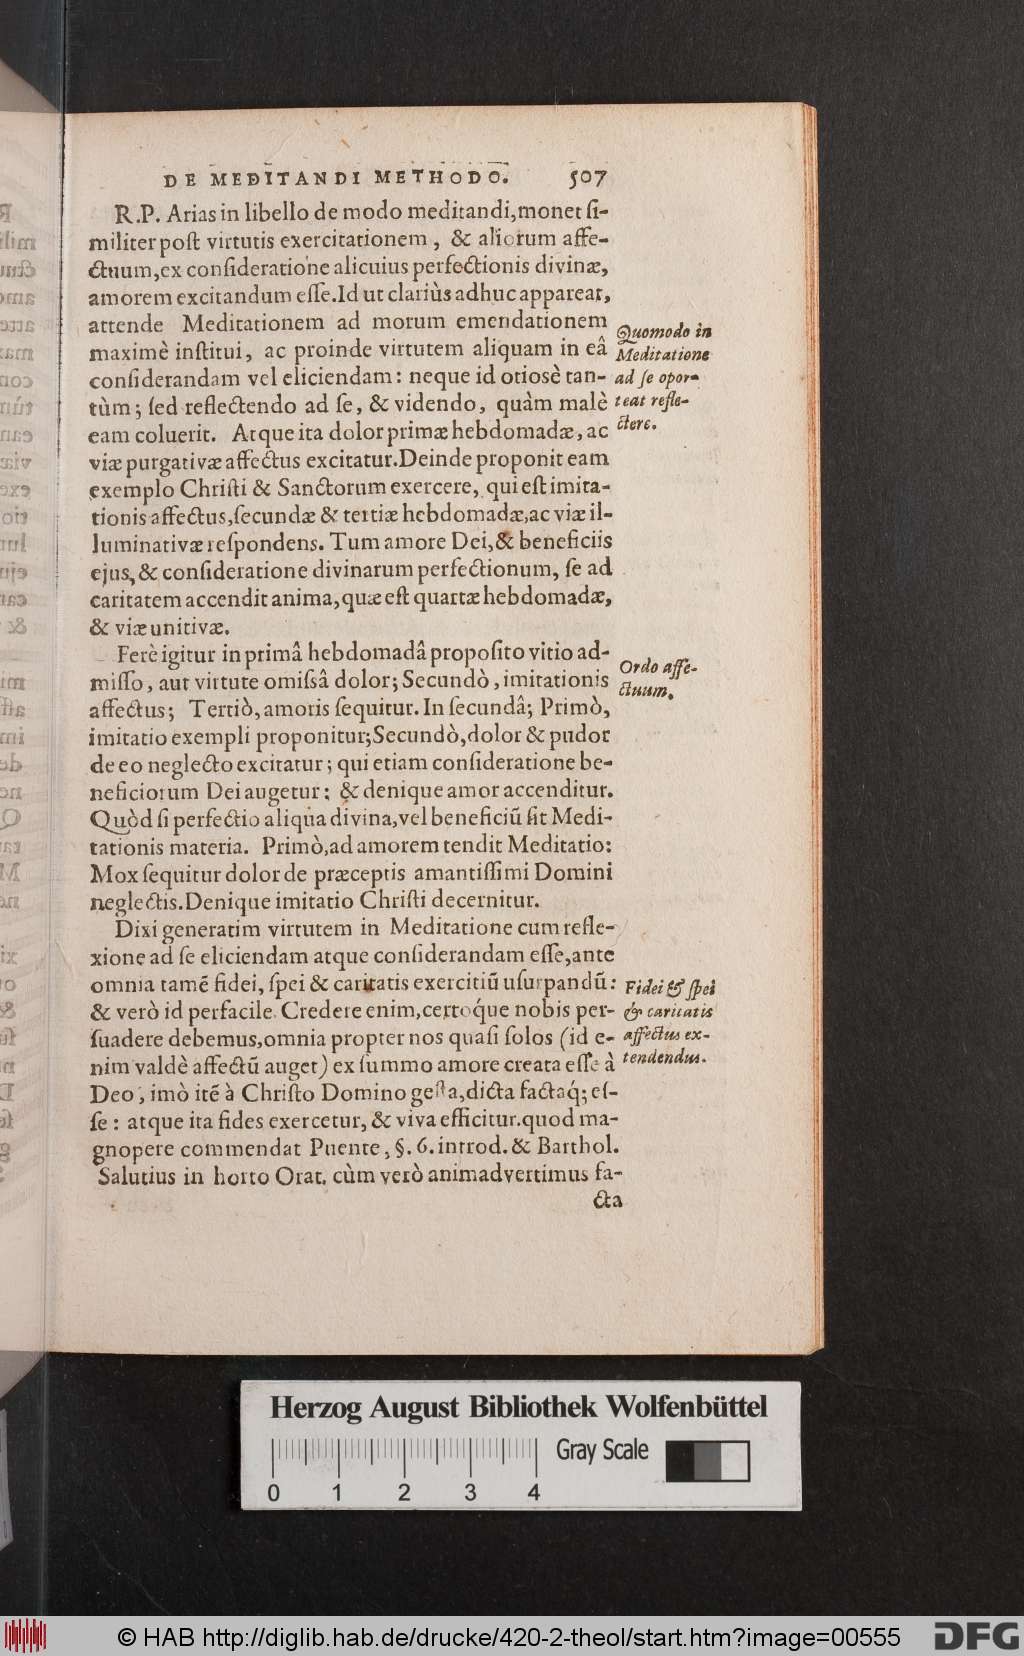 DE MEDITANDI METHODO. 507
R.P. Arias in libello de modo meditandi, monet ſi-
militer poſt virtutis exercitationem, & aliorum affe-
ctuum, ex conſideratione alicuius perfectionis divinæ,
amorem excitandum eſſe. Id ut clariùs adhuc appareat,
attende Meditationem ad morum emendationem
maximè inſtitui, ac proinde virtutem aliquam in eâ
conſiderandam vel eliciendam: neque id otiosè tan-
tùm; ſed reflectendo ad ſe, & videndo, quàm malè
eam coluerit. Atque ita dolor primæ hebdomadæ, ac
viæ purgativæ affectus excitatur. Deinde proponit eam
exemplo Chriſti & Sanctorum exercere, qui eſt imita-
tionis affectus, ſecundæ & tertiæ hebdomadæ, ac viæ il-
luminativæ reſpondens. Tum amore Dei, & beneficiis
ejus, & conſideratione divinarum perfectionum, ſe ad
caritatem accendit anima, quæ eſt quartæ hebdomadæ,
& viæ unitivæ.
Quomodo in
Meditatione
ad ſe opor-
teat refle-
ctere.
Ferè igitur in primâ hebdomadâ propoſito vitio ad-
miſſo, aut virtute omiſsâ dolor; Secundò, imitationis
affectus; Tertiò, amoris ſequitur. In ſecundâ; Primò,
imitatio exempli proponitur; Secundò, dolor & pudor
de eo neglecto excitatur; qui etiam conſideratione be-
neficiorum Dei augetur: & denique amor accenditur.
Quòd ſi perfectio aliqua divina, vel beneficiũ ſit Medi-
tationis materia. Primò, ad amorem tendit Meditatio:
Mox ſequitur dolor de præceptis amantiſſimi Domini
neglectis. Denique imitatio Chriſti decernitur.
Ordo affe-
ctuum.
Dixi generatim virtutem in Meditatione cum refle-
xione ad ſe eliciendam atque conſiderandam eſſe, ante
omnia tamẽ fidei, ſpei & caritatis exercitiũ uſurpandũ:
& verò id perfacile. Credere enim, certoq́ue nobis per-
ſuadere debemus, omnia propter nos quaſi ſolos (id e-
nim valdè affectũ auget) ex ſummo amore creata eſſe à
Deo, imò itẽ à Chriſto Domino geſta, dicta factaq́; eſ-
ſe: atque ita fides exercetur, & viva efficitur. quod ma-
gnopere commendat Puente, §. 6. introd. & Barthol.
Salutius in horto Orat. cùm verò animadvertimus fa-
cta
Fidei & ſpei
& caritatis
affectus ex-
tendendus.
Herzog August Bibliothek Wolfenbüttel
Gray Scale
0 1 2 3 4
© HAB http://diglib.hab.de/drucke/420-2-theol/start.htm?image=00555
DFG